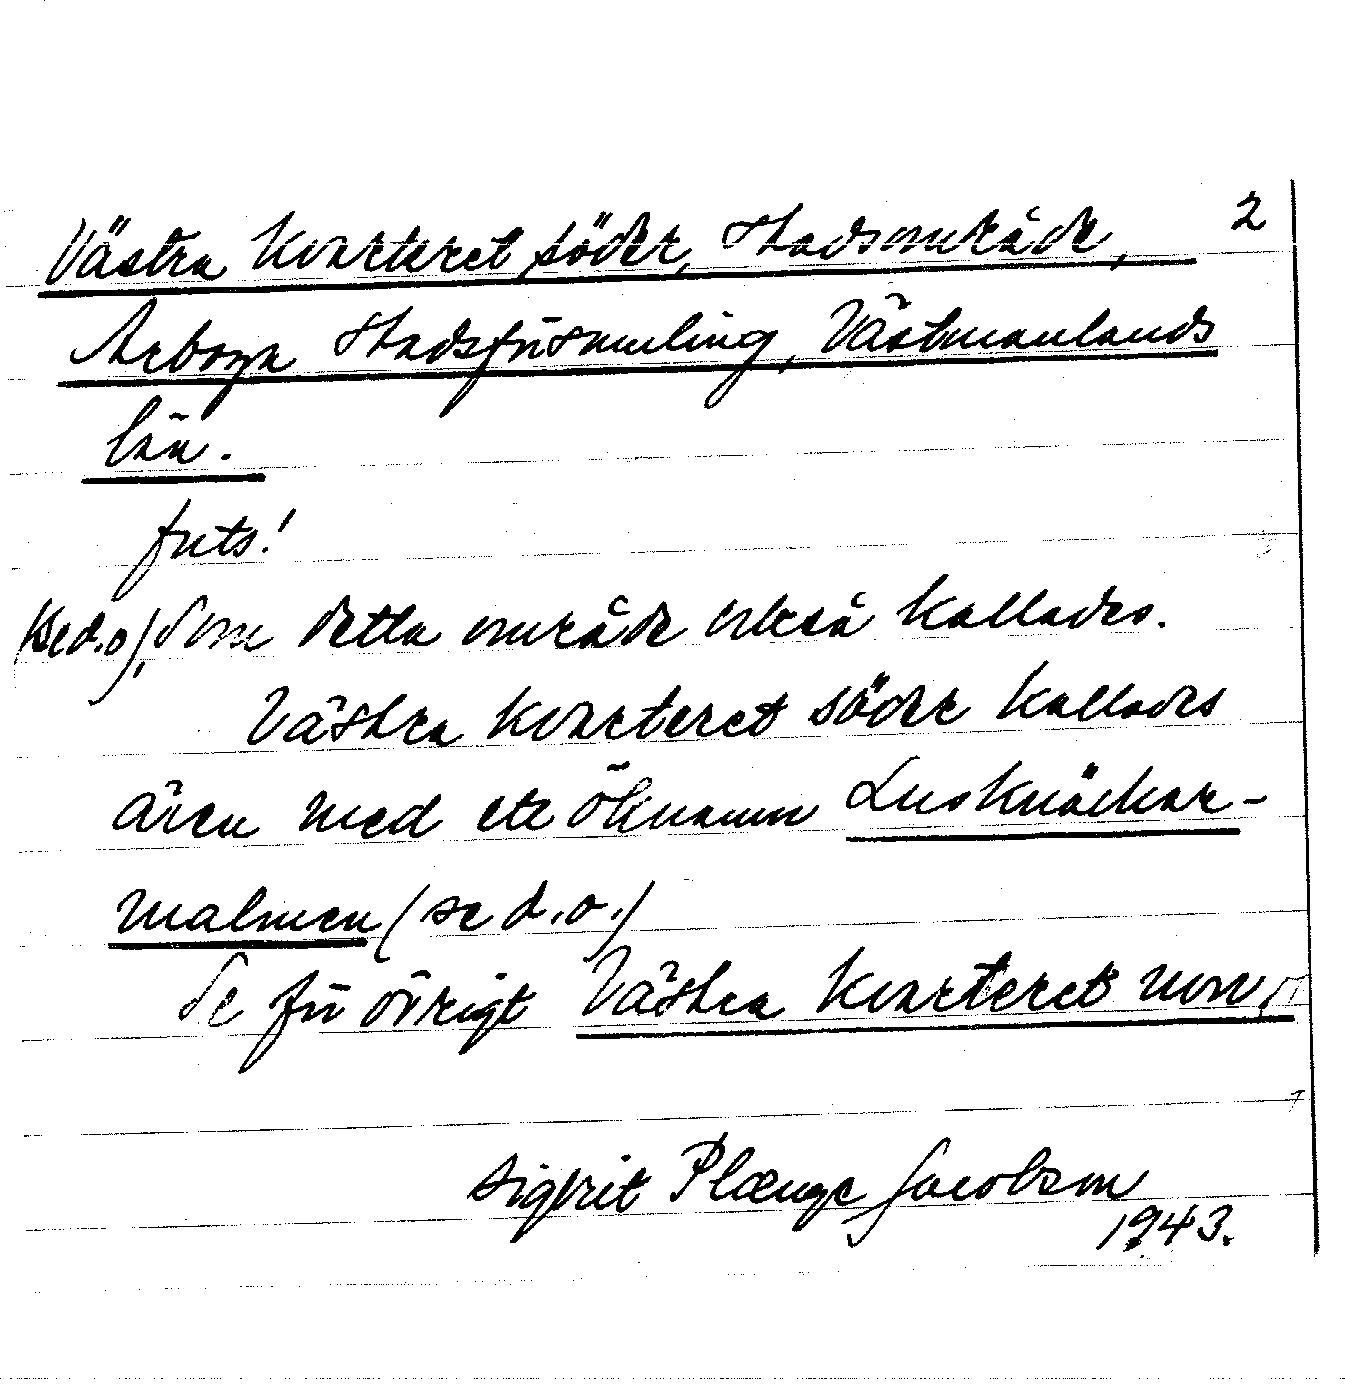 2
Västra kvarteret söder, Stadsområde,
Arboga Stadsförsamling, Västmanlands
län.
forts!
(se d.o), som detta område också kallades.
Västra kvarteret söder kallades
även med ett öknamn Lusknäckar-
malmen (se d.o.)
Se för övrigt Västra kvarteret norr,
Sigbrit Plænge Jacobson
1943.